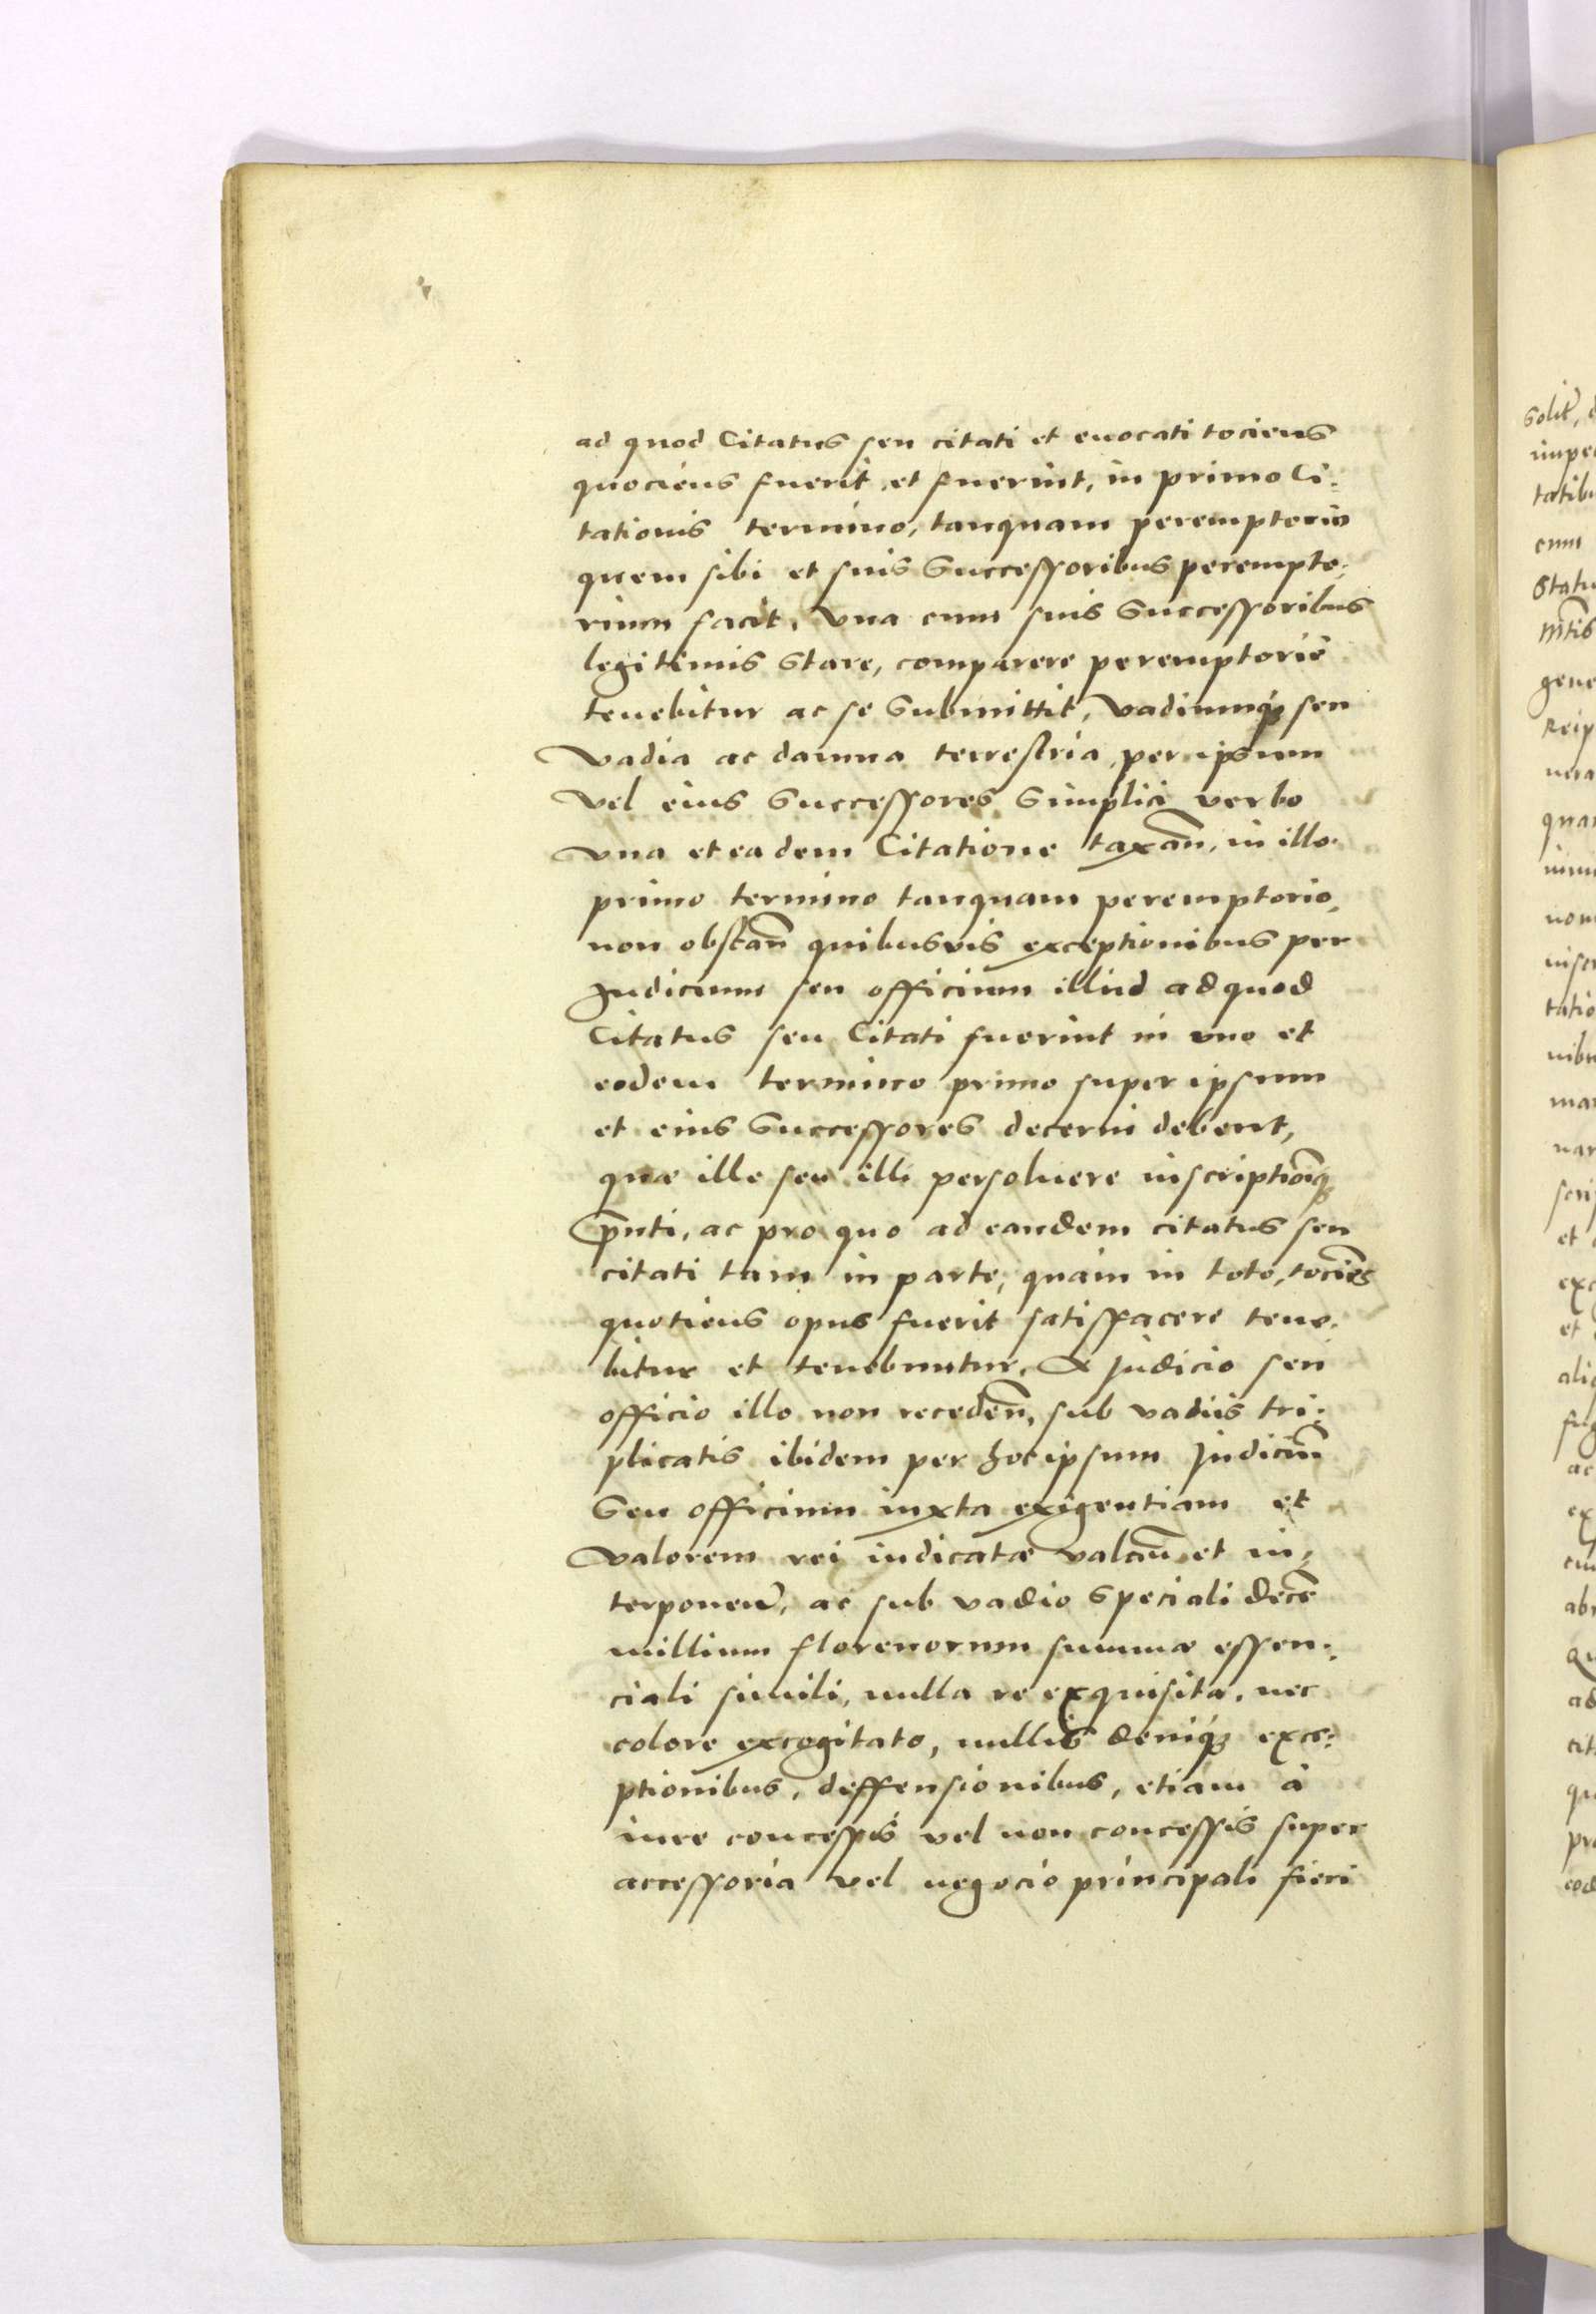 ad quod Citatus seu citati et euocati tociens
quociens fuerit et fuerint, in primo Ci:
tationis termino, tanquam peremptorio
quem sibi et suis Successoribus perempto:
rium facit, vna cum suis Successoribus
legitimis stare, comparere peremptorie
tenebitur ac se submittit, vadiumq́ꝫ seu
vadia ac damna terrestria per ipsum
vel eius Successores Simplici verbo
vna et eadem Citatione taxañ, in illo
primo termino tanquam peremptorio,
non obstañ quibusuis exceptionibus per
Judicium seu officium illud ad quod
Citatus seu Citati fuerint in vno et
eodem termino primo super ipsum
et eius Successores decerni debent,
quæ ille seu illi persoluere inscriptioniq́ꝫ
p̃nti, ac pro quo ad eandem citatus seu
citati tam in parte, quam in toto, tociẽs
quotiens opus fuerit satisfacere tene:
bitur et tenebuntur, A judicio seu
officio illo non recedeñ, sub vadiis tri:
plicatis ibidem per hoc ipsum Judiciũ
Seu officium iuxta exigentiam et
valorem rei iudicatæ valañ et in:
terponeñ, ac sub vadio Speciali decẽ
millium florenorum summæ essen:
ciali simili, nulla re exquisita, nec
colore excogitato, nullis deniq́ꝫ exce:
ptionibus, deffensionibus, etiam à
iure concessis vel non concessis super
accessoria vel negocio principali fieri
solitꝰ,
cum